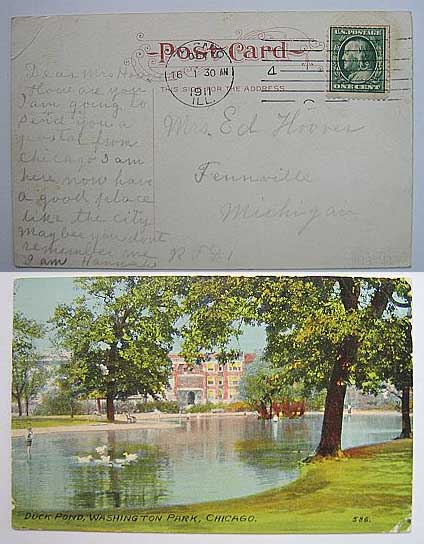 Post Card
THIS SIDE FOR THE ADDRESS
OCT
16 1 30 AM
1911
ILL.
4
U.S. POSTAGE
ONE CENT
Dear Mrs
How are you
I am going to
send you a
postal from
Chicago I am
here now have
a good place
like the city
maybee you dont
remember me
I am
Mrs Ed Hoover
Fennville
Michigan
R F D 1
DUCK POND, WASHINGTON PARK, CHICAGO.
586.